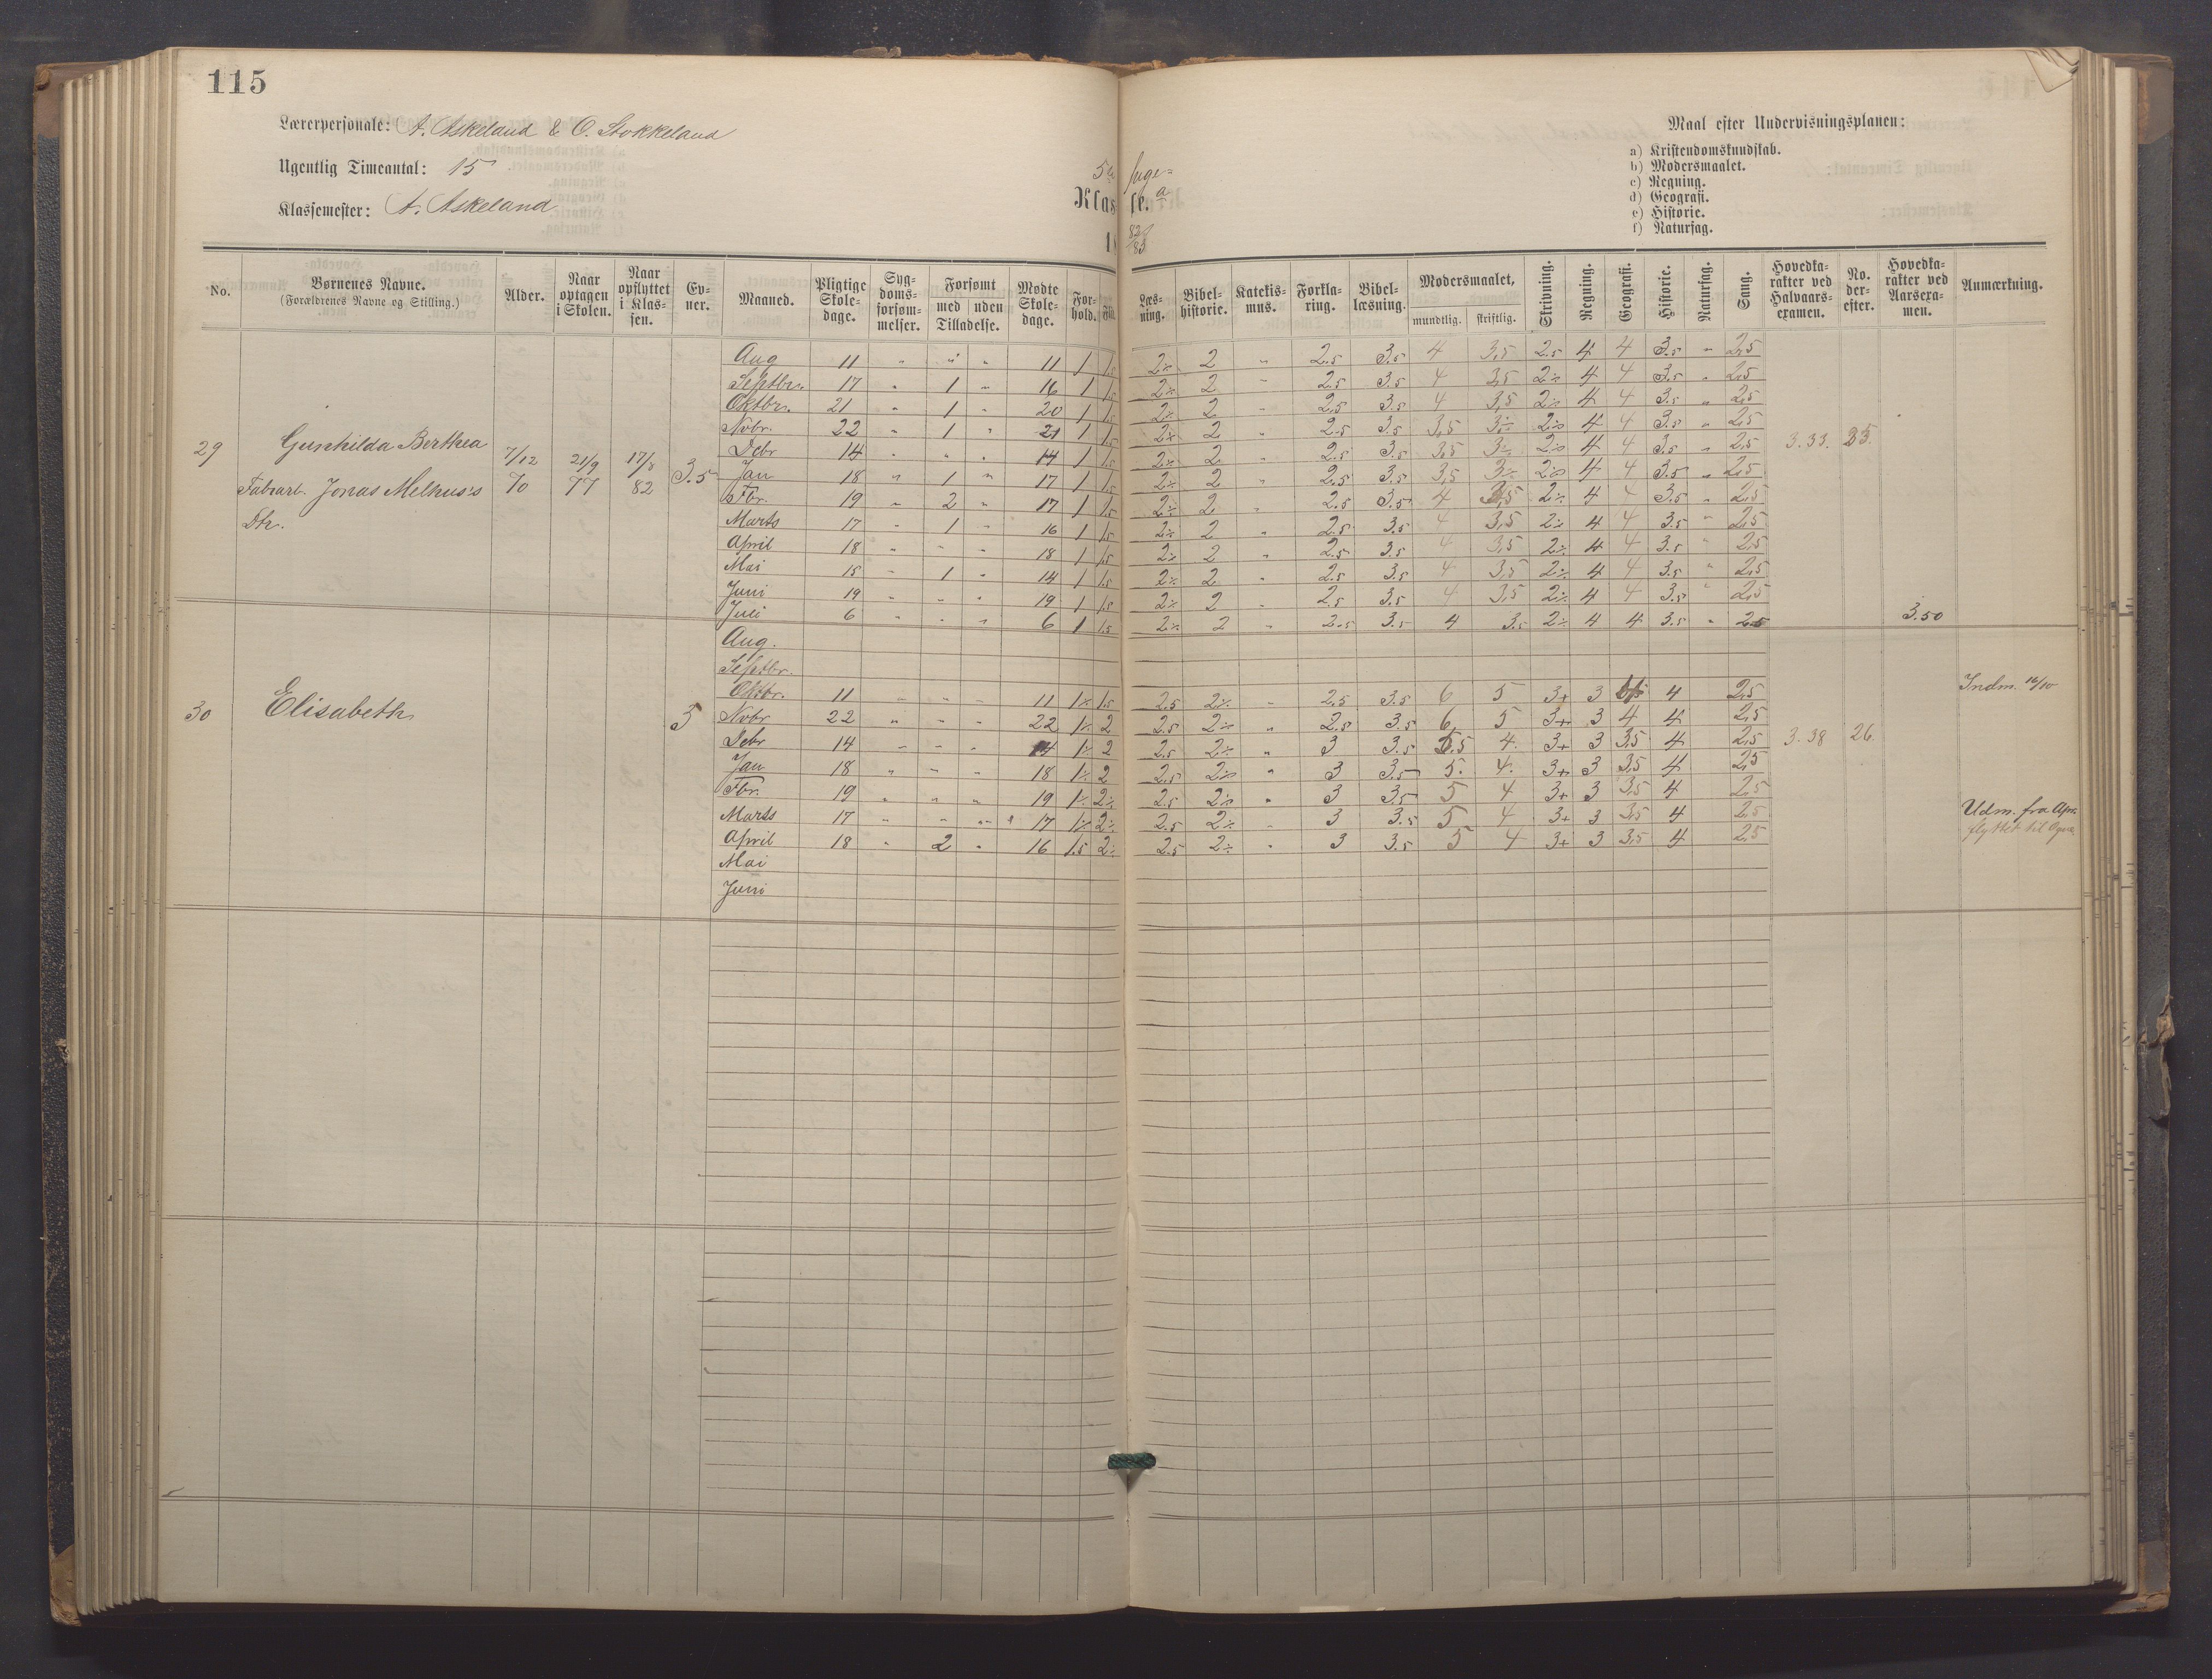 115
Lærerpersonale: A. Askeland & O. Stokkeland
Ugentlig Timeantal: 15
Klassemester: A. Askeland
Klasse. a
18 82/83
Maal efter Undervisningsplanen:
a) Kristendomskundskab.
b) Modersmaalet.
c) Regning.
d) Geografi.
e) Historie.
f) Naturfag.
No. Børnenes Navne. (Forældrenes Navne og Stilling.) Alder. Naar optagen i Skolen. Naar opflyttet i Klassen. Evner. Maaned. Pligtige Skoledage. Sygdomsforsømmelser. Forsømt med uden Tilladelse. Mødte Skoledage. Forhold. Flid. Læsning. Bibelhistorie. Katekismus. Forklaring. Bibellæsning. Modersmaalet, mundtlig. skriftlig. Skrivning. Regning. Geografi. Historie. Naturfag. Sang. Hovedkarakter ved Halvaarsexamen. No. derefter. Hovedkarakter ved Aarsexamen. Anmærkning.
29 Gunhilda Berthea 7/12 70 21/9 77 17/8 82 3.5
Fabrarb. Jonas Melhus's
Dtr.
Aug 11 " " " 11 1 1.5 2÷ 2 " 2.5 3.5 4 3,5 2.5 4 4 3.5 " 2,5
Septbr. 17 " 1 " 16 1 1.5 2÷ 2 " 2.5 3.5 4 3,5 2÷ 4 4 3.5 " 2,5
Oktbr. 21 " 1 " 20 1 1.5 2÷ 2 " 2.5 3.5 4 3,5 2÷ 4 4 3.5 " 2,5
Nvbr. 22 " 1 " 21 1 1.5 2÷ 2 " 2.5 3.5 3,5 3÷ 2÷ 4 4 3.5 " 2,5
Debr 14 " " " 14 1 1.5 2÷ 2 " 2.5 3.5 3,5 3÷ 2÷ 4 4 3.5 " 2,5 3.33.
Jan 18 " 1 " 17 1 1.5 2÷ 2 " 2.5 3.5 3,5 3÷ 2÷ 4 4 3.5 " 2,5
Fbr. 19 " 2 " 17 1 1.5 2÷ 2 " 2.5 3.5 4 3,5 2÷ 4 4 3.5 " 2,5
Marts 17 " 1 " 16 1 1.5 2÷ 2 " 2.5 3.5 4 3,5 2÷ 4 4 3.5 " 2,5
April 18 " " " 18 1 1.5 2÷ 2 " 2.5 3.5 4 3,5 2÷ 4 4 3.5 " 2,5
Mai 15 " 1 " 14 1 1.5 2÷ 2 " 2.5 3.5 4 3,5 2÷ 4 4 3.5 " 2,5
Juni 19 " " " 19 1 1.5 2÷ 2 " 2.5 3.5 4 3,5 2÷ 4 4 3.5 " 2,5
Juli 6 " " " 6 1 1.5 2÷ 2 " 2.5 3.5 4 3.5 2÷ 4 4 3.5 " 2.5 3.50
30 Elisabeth 3
Aug.
Septbr.
Oktbr. 11 " " " 11 1÷ 1.5 2.5 2÷ " 2.5 3.5 6 5 3+ 3 4 2,5 Indm. 16/10
Nvbr 22 " " " 22 1÷ 2 2.5 2÷ " 2.5 3.5 6 5 3+ 3 4 4 2,5
Debr 14 " " " 14 1÷ 2 2.5 2÷ " 3 3.5 5.5 4. 3+ 3 3,5 4 2,5 3.38 26
Jan 18 " " " 18 1÷ 2 2.5 2÷ " 3 3.5 5. 4. 3+ 3 3,5 4 2,5
Fbr. 19 " " " 19 1÷ 2÷ 2.5 2÷ " 3 3.5 5 4 3+ 3 3,5 4 2,5
Marts 17 " " " 17 1÷ 2÷ 2.5 2÷ " 3 3.5 5 4 3+ 3 3,5 4 2,5 Udm. fra Apr.
April 18 " 2 " 16 1.5 2÷ 2.5 2÷ " 3 3.5 5 4 3+ 3 3,5 4 2,5 flyttet til Ogna
Mai
Juni